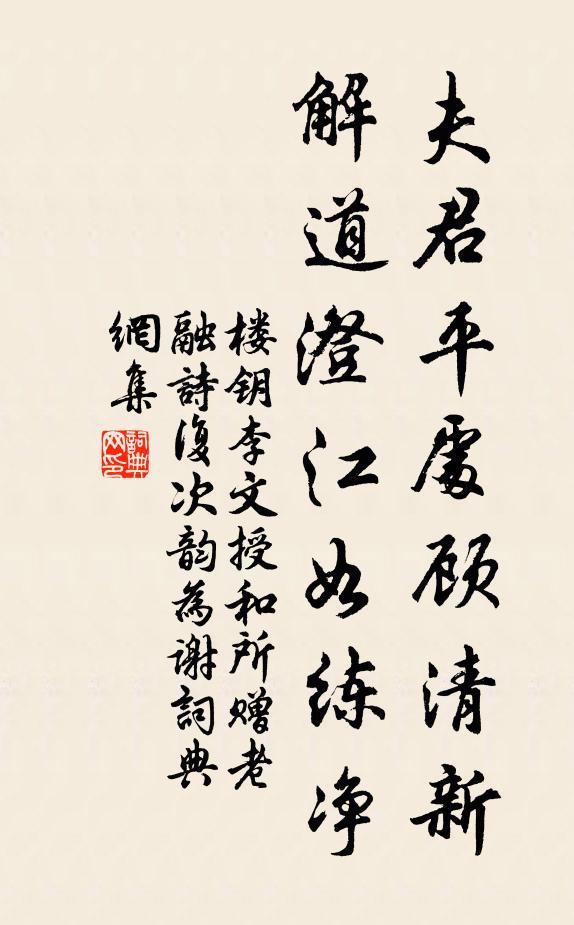 夫君平處顾清新
解道澄江如练净
楼钥李文授和所赠老
融詩復次韵為谢詞典
網集
詞典
网印